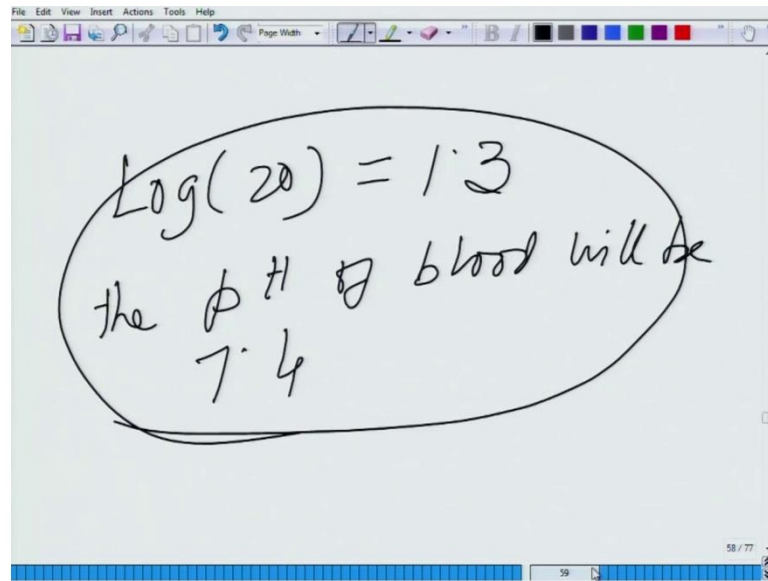 File Edit View Insert Actions Tools Help
Page Width
B I
Log(20) = 1.3
the pH of blood will be
7.4
58 / 77
59